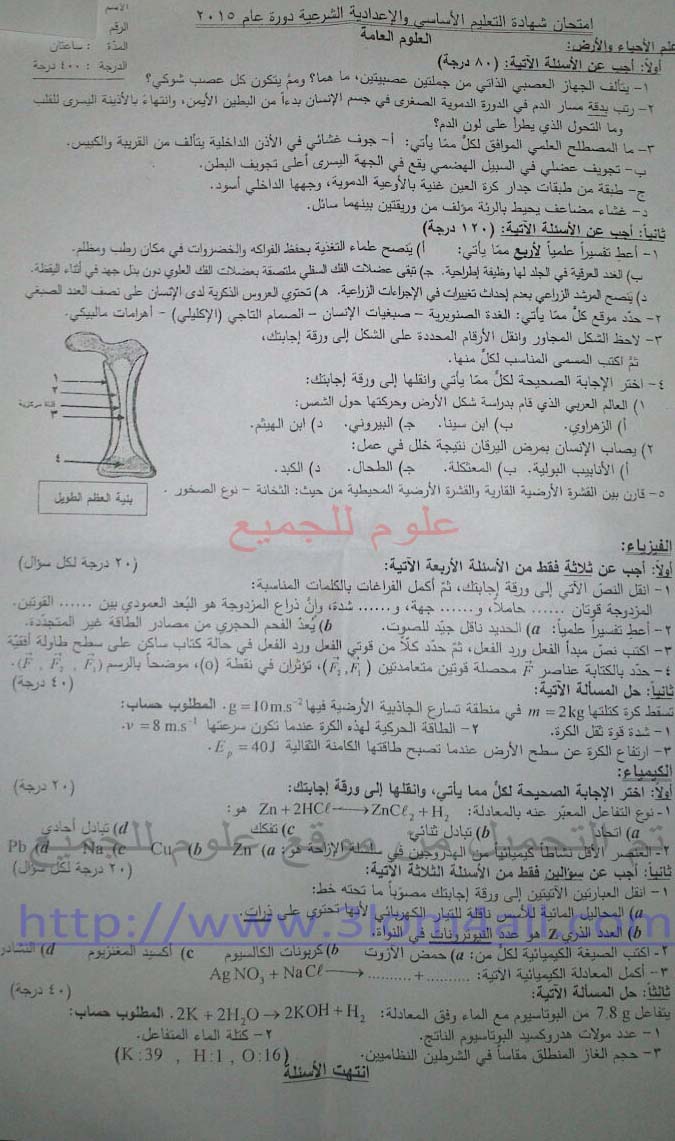 امتحان شهادة التعليم الأساسي والإعدادية الشرعية دورة عام ٢٠١٥
الاسم
الرقم
المدّة : ساعتان
الدرجة : ٤٠٠ درجة
العلوم العامة
علم الأحياء والأرض:
أولاً: أجب عن الأسئلة الآتية: (٨٠ درجة)
١- يتألف الجهاز العصبي الذاتي من جملتين عصبيتين، ما هما؟ وممّ يتكون كل عصب شوكي؟
٢- رتب بدقة مسار الدم في الدورة الدموية الصغرى في جسم الإنسان بدءاً من البطين الأيمن، وانتهاءً بالأذينة اليسرى للقلب
وما التحول الذي يطرأ على لون الدم؟
٣- ما المصطلح العلمي الموافق لكلّ ممّا يأتي: أ- جوف غشائي في الأذن الداخلية يتألف من القريبة والكييس.
ب- تجويف عضلي في السبيل الهضمي يقع في الجهة اليسرى أعلى تجويف البطن.
ج- طبقة من طبقات جدار كرة العين غنية بالأوعية الدموية، وجهها الداخلي أسود.
د- غشاء مضاعف يحيط بالرئة مؤلف من وريقتين بينهما سائل.
ثانياً: أجب عن الأسئلة الآتية: (١٢٠ درجة)
١- أعطِ تفسيراً علمياً لأربع ممّا يأتي: أ) يَنصح علماء التغذية بحفظ الفواكه والخضروات في مكان رطب ومظلم.
ب) الغدد العرقية في الجلد لها وظيفة إطراحية. ج) تبقى عضلات الفك السفلي ملتصقة بعضلات الفك العلوي دون بذل جهد في أثناء اليقظة.
د) يَنصح المرشد الزراعي بعدم إحداث تغييرات في الإجراءات الزراعية. هـ) تحتوي العروس الذكرية لدى الإنسان على نصف العدد الصبغي
٢- حدّد موقع كلّ ممّا يأتي: الغدة الصنوبرية - صبغيات الإنسان - الصمام التاجي (الإكليلي) - أهرامات مالبيكي.
٣- لاحظ الشكل المجاور وانقل الأرقام المحددة على الشكل إلى ورقة إجابتك،
ثمّ اكتب المسمى المناسب لكلّ منها.
١
٢
قناة مركزية
٣
٤
بنية العظم الطويل
٤- اختر الإجابة الصحيحة لكلّ ممّا يأتي وانقلها إلى ورقة إجابتك:
١) العالم العربي الذي قام بدراسة شكل الأرض وحركتها حول الشمس:
أ) الزهراوي. ب) ابن سينا. ج) البيروني. د) ابن الهيثم.
٢) يصاب الإنسان بمرض اليرقان نتيجة خلل في عمل:
أ) الأنابيب البولية. ب) المعثكلة. ج) الطحال. د) الكبد.
٥- قارن بين القشرة الأرضية القارية والقشرة الأرضية المحيطية من حيث: الثخانة - نوع الصخور .
علوم للجميع
الفيزياء:
أولاً: أجب عن ثلاثة فقط من الأسئلة الأربعة الآتية: (٢٠ درجة لكل سؤال)
١- انقل النصّ الآتي إلى ورقة إجابتك، ثمّ أكمل الفراغات بالكلمات المناسبة:
المزدوجة قوتان ...... حاملاً، و...... جهة، و...... شدة، وإنّ ذراع المزدوجة هو البُعد العمودي بين ...... القوتين.
٢- أعطِ تفسيراً علمياً: a) الحديد ناقل جيّد للصوت. b) يُعدّ الفحم الحجري من مصادر الطاقة غير المتجدّدة.
٣- اكتب نصّ مبدأ الفعل ورد الفعل، ثمّ حدّد كلّاً من قوتي الفعل ورد الفعل في حالة كتاب ساكن على سطح طاولة أفقيّة
٤- حدّد بالكتابة عناصر F محصلة قوتين متعامدتين (F₂,F₁)، تؤثران في نقطة (o)، موضحاً بالرسم (F , F₂ , F₁).
ثانياً: حل المسألة الآتية: (٤٠ درجة)
تسقط كرة كتلتها m = 2kg في منطقة تسارع الجاذبية الأرضية فيها g=10m.s⁻². المطلوب حساب:
١- شدة قوة ثقل الكرة. ٢- الطاقة الحركية لهذه الكرة عندما تكون سرعتها v=8 m.s⁻¹.
٣- ارتفاع الكرة عن سطح الأرض عندما تصبح طاقتها الكامنة الثقالية Ep=40J.
الكيمياء:
أولاً: اختر الإجابة الصحيحة لكلّ مما يأتي، وانقلها إلى ورقة إجابتك: (٢٠ درجة)
١- نوع التفاعل المعبّر عنه بالمعادلة: Zn + 2HCℓ ⟶ ZnCℓ₂ + H₂ هو:
a) اتحاد b) تبادل ثنائي c) تفكك d) تبادل أحادي
تم التحميل من موقع علوم للجميع
٢- العنصر الأقل نشاطاً كيميائياً من الهدروجين في سلسلة الإزاحة هو: a) Zn b) Cu c) Na d) Pb
ثانياً: أجب عن سؤالين فقط من الأسئلة الثلاثة الآتية: (٢٠ درجة لكل سؤال)
١- انقل العبارتين الآتيتين إلى ورقة إجابتك مصوّباً ما تحته خط:
a) المحاليل المائية للأسس ناقلة للتيار الكهربائي لأنها تحتوي على ذرات.
b) العدد الذري Z هو عدد النيوترونات في النواة.
٢- اكتب الصيغة الكيميائية لكلّ من: a) حمض الآزوت b) كربونات الكالسيوم c) أكسيد المغنزيوم d) النشادر
٣- أكمل المعادلة الكيميائية الآتية: AgNO₃ + NaCℓ ⟶ .......... + ..........
ثالثاً: حل المسألة الآتية: (٤٠ درجة)
يتفاعل 7.8 g من البوتاسيوم مع الماء وفق المعادلة: 2K + 2H₂O → 2KOH + H₂. المطلوب حساب:
١- عدد مولات هدروكسيد البوتاسيوم الناتج. ٢- كتلة الماء المتفاعل.
٣- حجم الغاز المنطلق مقاساً في الشرطين النظاميين. (K:39 , H:1 , O:16)
انتهت الأسئلة